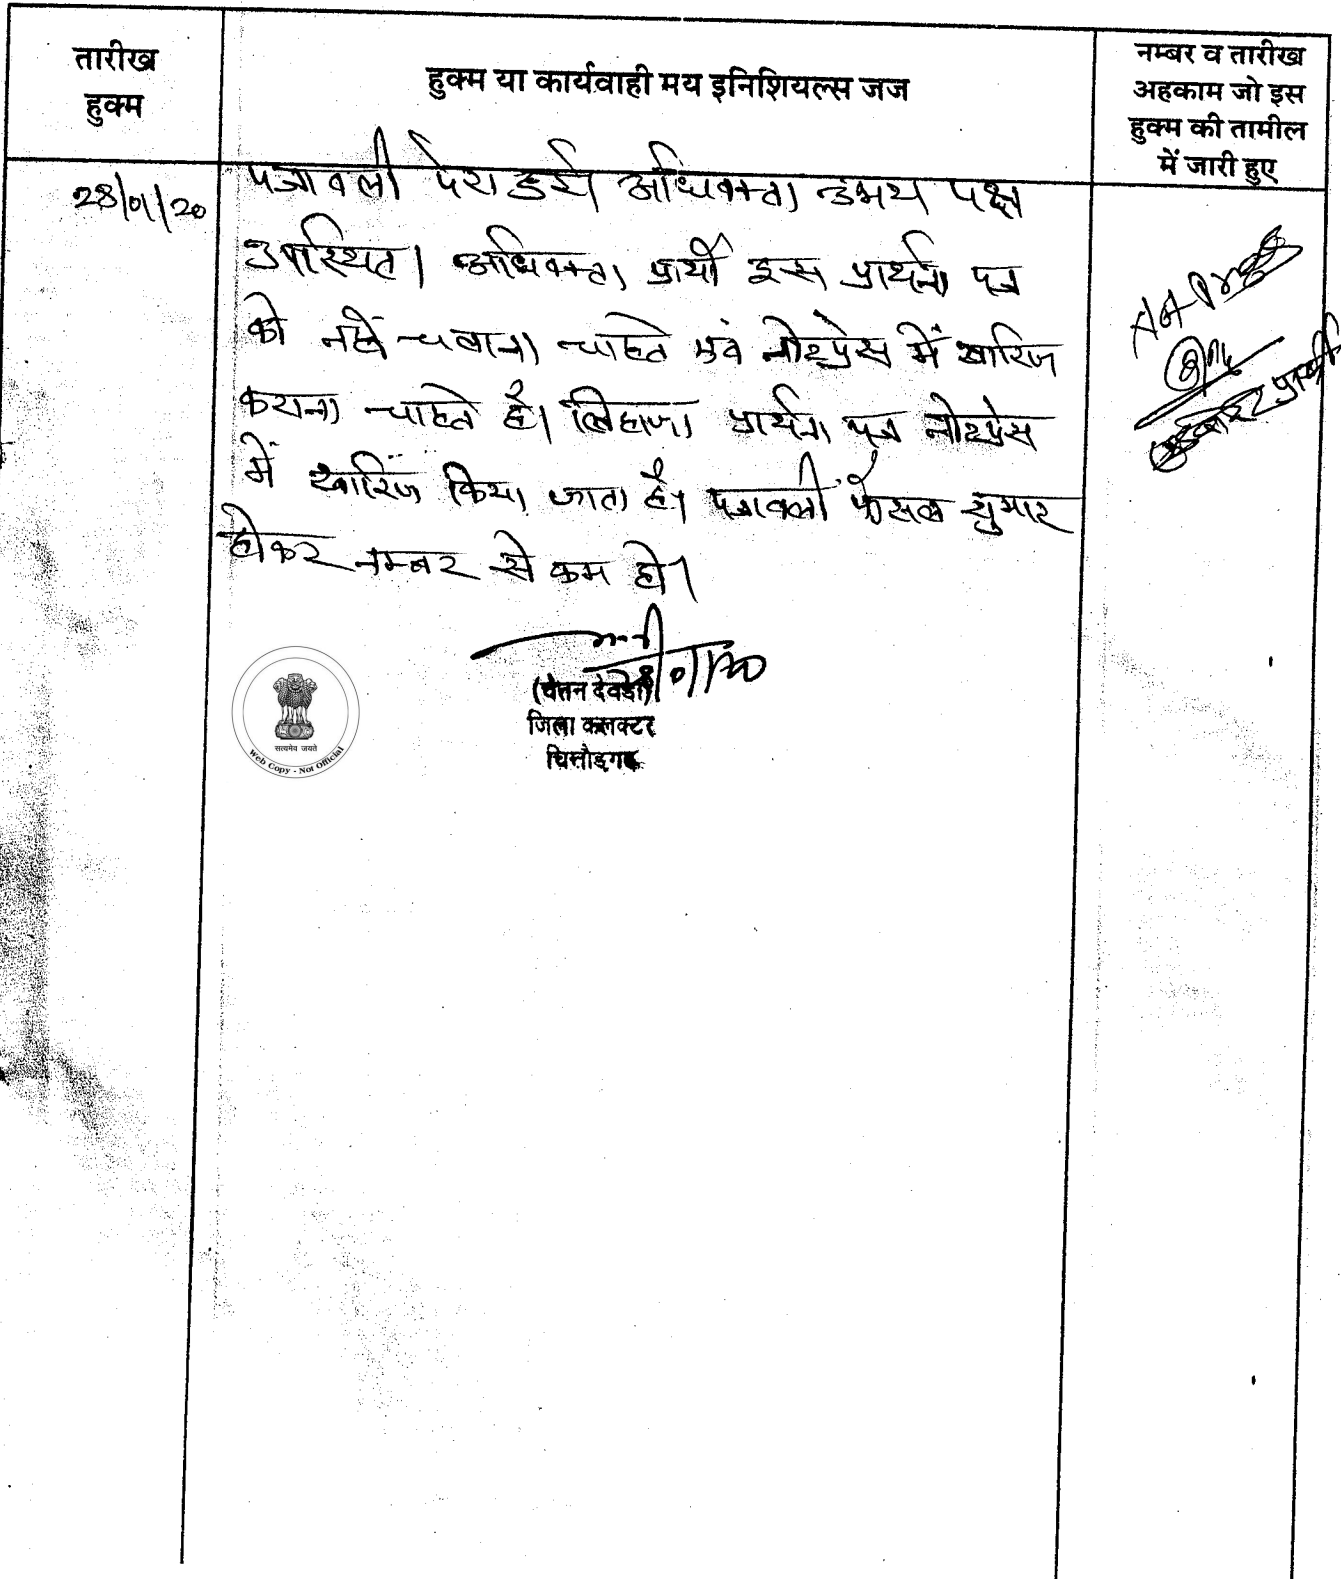 तारीख
हुक्म
हुक्म या कार्यवाही मय इनिशियल्स जज
नम्बर व तारीख
अहकाम जो इस
हुक्म की तामील
में जारी हुए
28/01/20
पत्रावली पेश हुई। अधिवक्ता उभय पक्ष
उपस्थित। अधिवक्ता प्रार्थी इस प्रार्थना पत्र
को नहीं चलाना चाहते एवं नोटप्रेस में खारिज
कराना चाहते है। लिहाजा प्रार्थना पत्र नोटप्रेस
में खारिज किया जाता है। पत्रावली फैसल शुमार
होकर नम्बर से कम हो।
28/01/20
(चेतन देवड़ा)
जिला कलक्टर
चित्तौड़गढ़
सत्यमेव जयते
Web Copy - Not Official